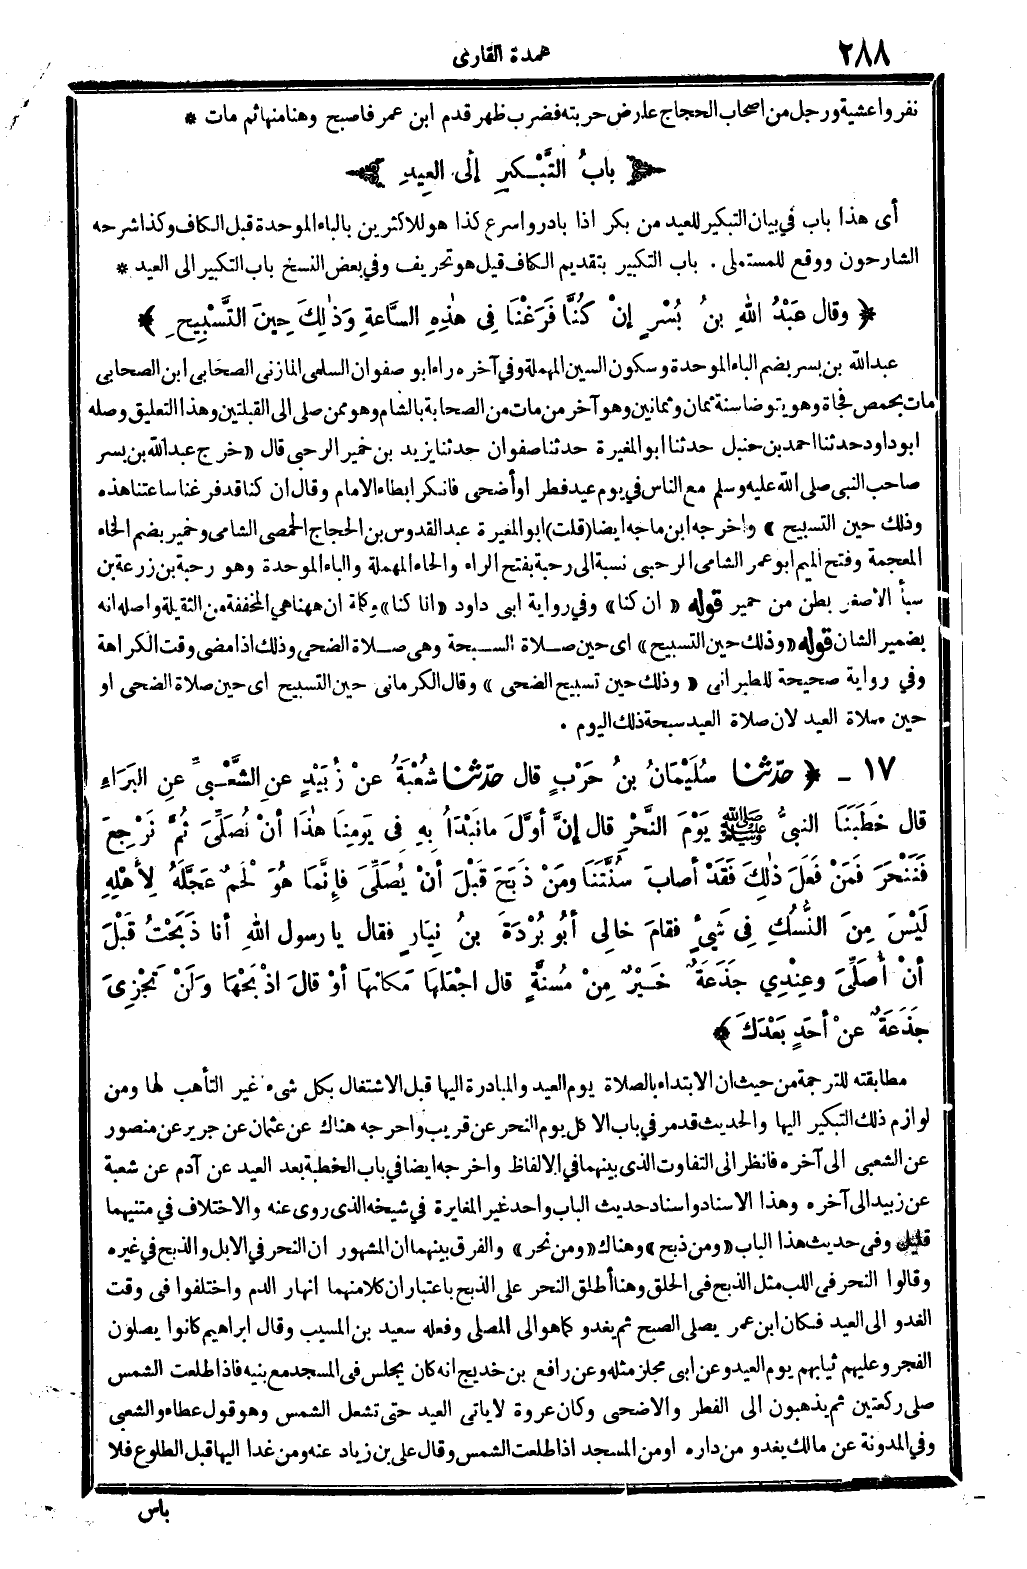 ٢٨٨
عمدة القارى
نفروا عشية ورجل من اصحاب الحجاج عارض حربته فضرب ظهر قدم ابن عمر فاصبح وهنا منها ثم مات *
بابُ التَّبْكيرِ إلى العيدِ
أى هذا باب في بيان التبكير للعيد من بكر اذا بادر واسرع كذا هو للاكثرين بالباء الموحدة قبل الكاف وكذا شرحه
الشارحون ووقع للمستملى . باب التكبير بتقديم الكاف قيل هو تحريف وفي بعض النسخ باب التكبير الى العيد *
﴿ وقال عَبْدُ اللهِ بنُ بُسْرٍ إنْ كُنَّا فَرَغْنَا فِى هٰذِهِ السَّاعَةِ وَذٰلِكَ حِينَ التَّسْبِيحِ ﴾
عبدالله بن بسر بضم الباء الموحدة وسكون السين المهملة وفي آخره راء ابو صفوان السلمى المازنى الصحابى ابن الصحابى
مات بحمص فجاة وهو يتوضا سنة ثمان وثمانين وهو آخر من مات من الصحابة بالشام وهو ممن صلى الى القبلتين وهذا التعليق وصله
ابو داود حدثنا احمد بن حنبل حدثنا ابو المغيرة حدثنا صفوان حدثنا يزيد بن خمير الرحبى قال «خرج عبدالله بن بسر
صاحب النبى صلى الله عليه وسلم مع الناس في يوم عيد فطر او أضحى فانكر ابطاء الامام وقال ان كنا قد فرغنا ساعتنا هذه
وذلك حين التسبيح » واخرجه ابن ماجه ايضا (قلت) ابو المغيرة عبد القدوس بن الحجاج الحمصى الشامى وخمير بضم الخاء
المعجمة وفتح الميم ابو عمر الشامى الرحبى نسبة الى رحبة بفتح الراء والحاء المهملة والباء الموحدة وهو رحبة بن زرعة بن
سبأ الاصغر بطن من حمير قوله « ان كنا» وفي رواية ابى داود «انا كنا» وكلة ان ههنا هي المخففة من الثقيلة واصله انه
بضمير الشان قوله «وذلك حين التسبيح» اى حين صلاة السبحة وهى صلاة الضحى وذلك اذا مضى وقت الكراهة
وفي رواية صحيحة للطبرانى « وذلك حين تسبيح الضحى » وقال الكرمانى حين التسبيح اى حين صلاة الضحى او
حين صلاة العيد لان صلاة العيد سبحة ذلك اليوم .
١٧ ـ ﴿ حدّثنا سُلَيْمَانُ بنُ حَرْبٍ قال حدّثنا شُعْبَةُ عنْ زُبَيْدٍ عنِ الشَّعْبىِّ عنِ البَرَاءِ
قال خَطَبَنَا النبىُّ ﷺ يَوْمَ النَّحْرِ قال إنَّ أوَّلَ ما نَبْدَأُ بِهِ فِى يَومِنا هذَا أنْ نُصَلِّىَ ثُمَّ نَرْجِعَ
فَنَنْحَرَ فَمَنْ فَعَلَ ذٰلِكَ فَقَدْ أصابَ سُنَّتَنَا ومَنْ ذَبَحَ قَبْلَ أنْ يُصَلِّىَ فإنَّمَا هُوَ لَحْمٌ عَجَّلَهُ لِأَهْلِهِ
لَيْسَ مِنَ النُّسُكِ فِى شَىْءٍ فقامَ خالِى أبُو بُرْدَةَ بنُ نِيَارٍ فقال يا رسول اللهِ أنا ذَبَحْتُ قَبْلَ
أنْ أُصَلِّىَ وعِنْدِي جَذَعَةٌ خَيْرٌ مِنْ مُسِنَّةٍ قال اجْعَلْهَا مَكانَهَا أوْ قالَ اذْبَحْهَا ولَنْ تَجْزِىَ
جَذَعَةٌ عنْ أحَدٍ بَعْدَكَ ﴾
مطابقته للترجمة من حيث ان الابتداء بالصلاة يوم العيد والمبادرة اليها قبل الاشتغال بكل شىء غير التأهب لها ومن
لوازم ذلك التبكير اليها والحديث قد مر في باب الاكل يوم النحر عن قريب واخرجه هناك عن عثمان عن جرير عن منصور
عن الشعبى الى آخره فانظر الى التفاوت الذى بينهما في الالفاظ واخرجه ايضا في باب الخطبة بعد العيد عن آدم عن شعبة
عن زبيد الى آخره وهذا الاسناد واسناد حديث الباب واحد غير المغايرة في شيخه الذى روى عنه والاختلاف في متنيهما
قليل وفى حديث هذا الباب «ومن ذبح» وهناك «ومن نحر» والفرق بينهما ان المشهور ان النحر في الابل والذبح في غيره
وقالوا النحر فى اللب مثل الذبح فى الحلق وهنا أطلق النحر على الذبح باعتبار ان كلا منهما انهار الدم واختلفوا فى وقت
الغدو الى العيد فكان ابن عمر يصلى الصبح ثم يغدو كما هو الى المصلى وفعله سعيد بن المسيب وقال ابراهيم كانوا يصلون
الفجر وعليهم ثيابهم يوم العيد وعن ابى مجلز مثله وعن رافع بن خديج انه كان يجلس فى المسجد مع بنيه فاذا طلعت الشمس
صلى ركعتين ثم يذهبون الى الفطر والاضحى وكان عروة لا ياتى العيد حتى تشعل الشمس وهو قول عطاء والشعبى
وفي المدونة عن مالك يغدو من داره او من المسجد اذا طلعت الشمس وقال على بن زياد عنه ومن غدا اليها قبل الطلوع فلا
باس